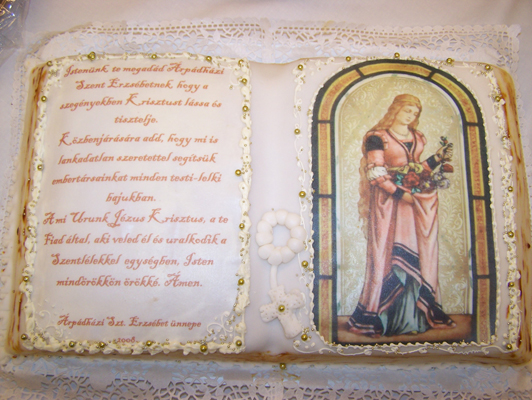 Istenünk, te megadád Árpádházi
Szent Erzsébetnek, hogy a
szegényekben Krisztust lássa és
tisztelje.
Közbenjárására add, hogy mi is
lankadatlan szeretettel segítsük
embertársainkat minden testi-lelki
bajukban.
A mi Urunk Jézus Krisztus, a te
Fiad által, aki veled él és uralkodik a
Szentlélekkel egységben, Isten
mindörökkön örökké. Ámen.
Árpádházi Szt. Erzsébet ünnepe
2008.